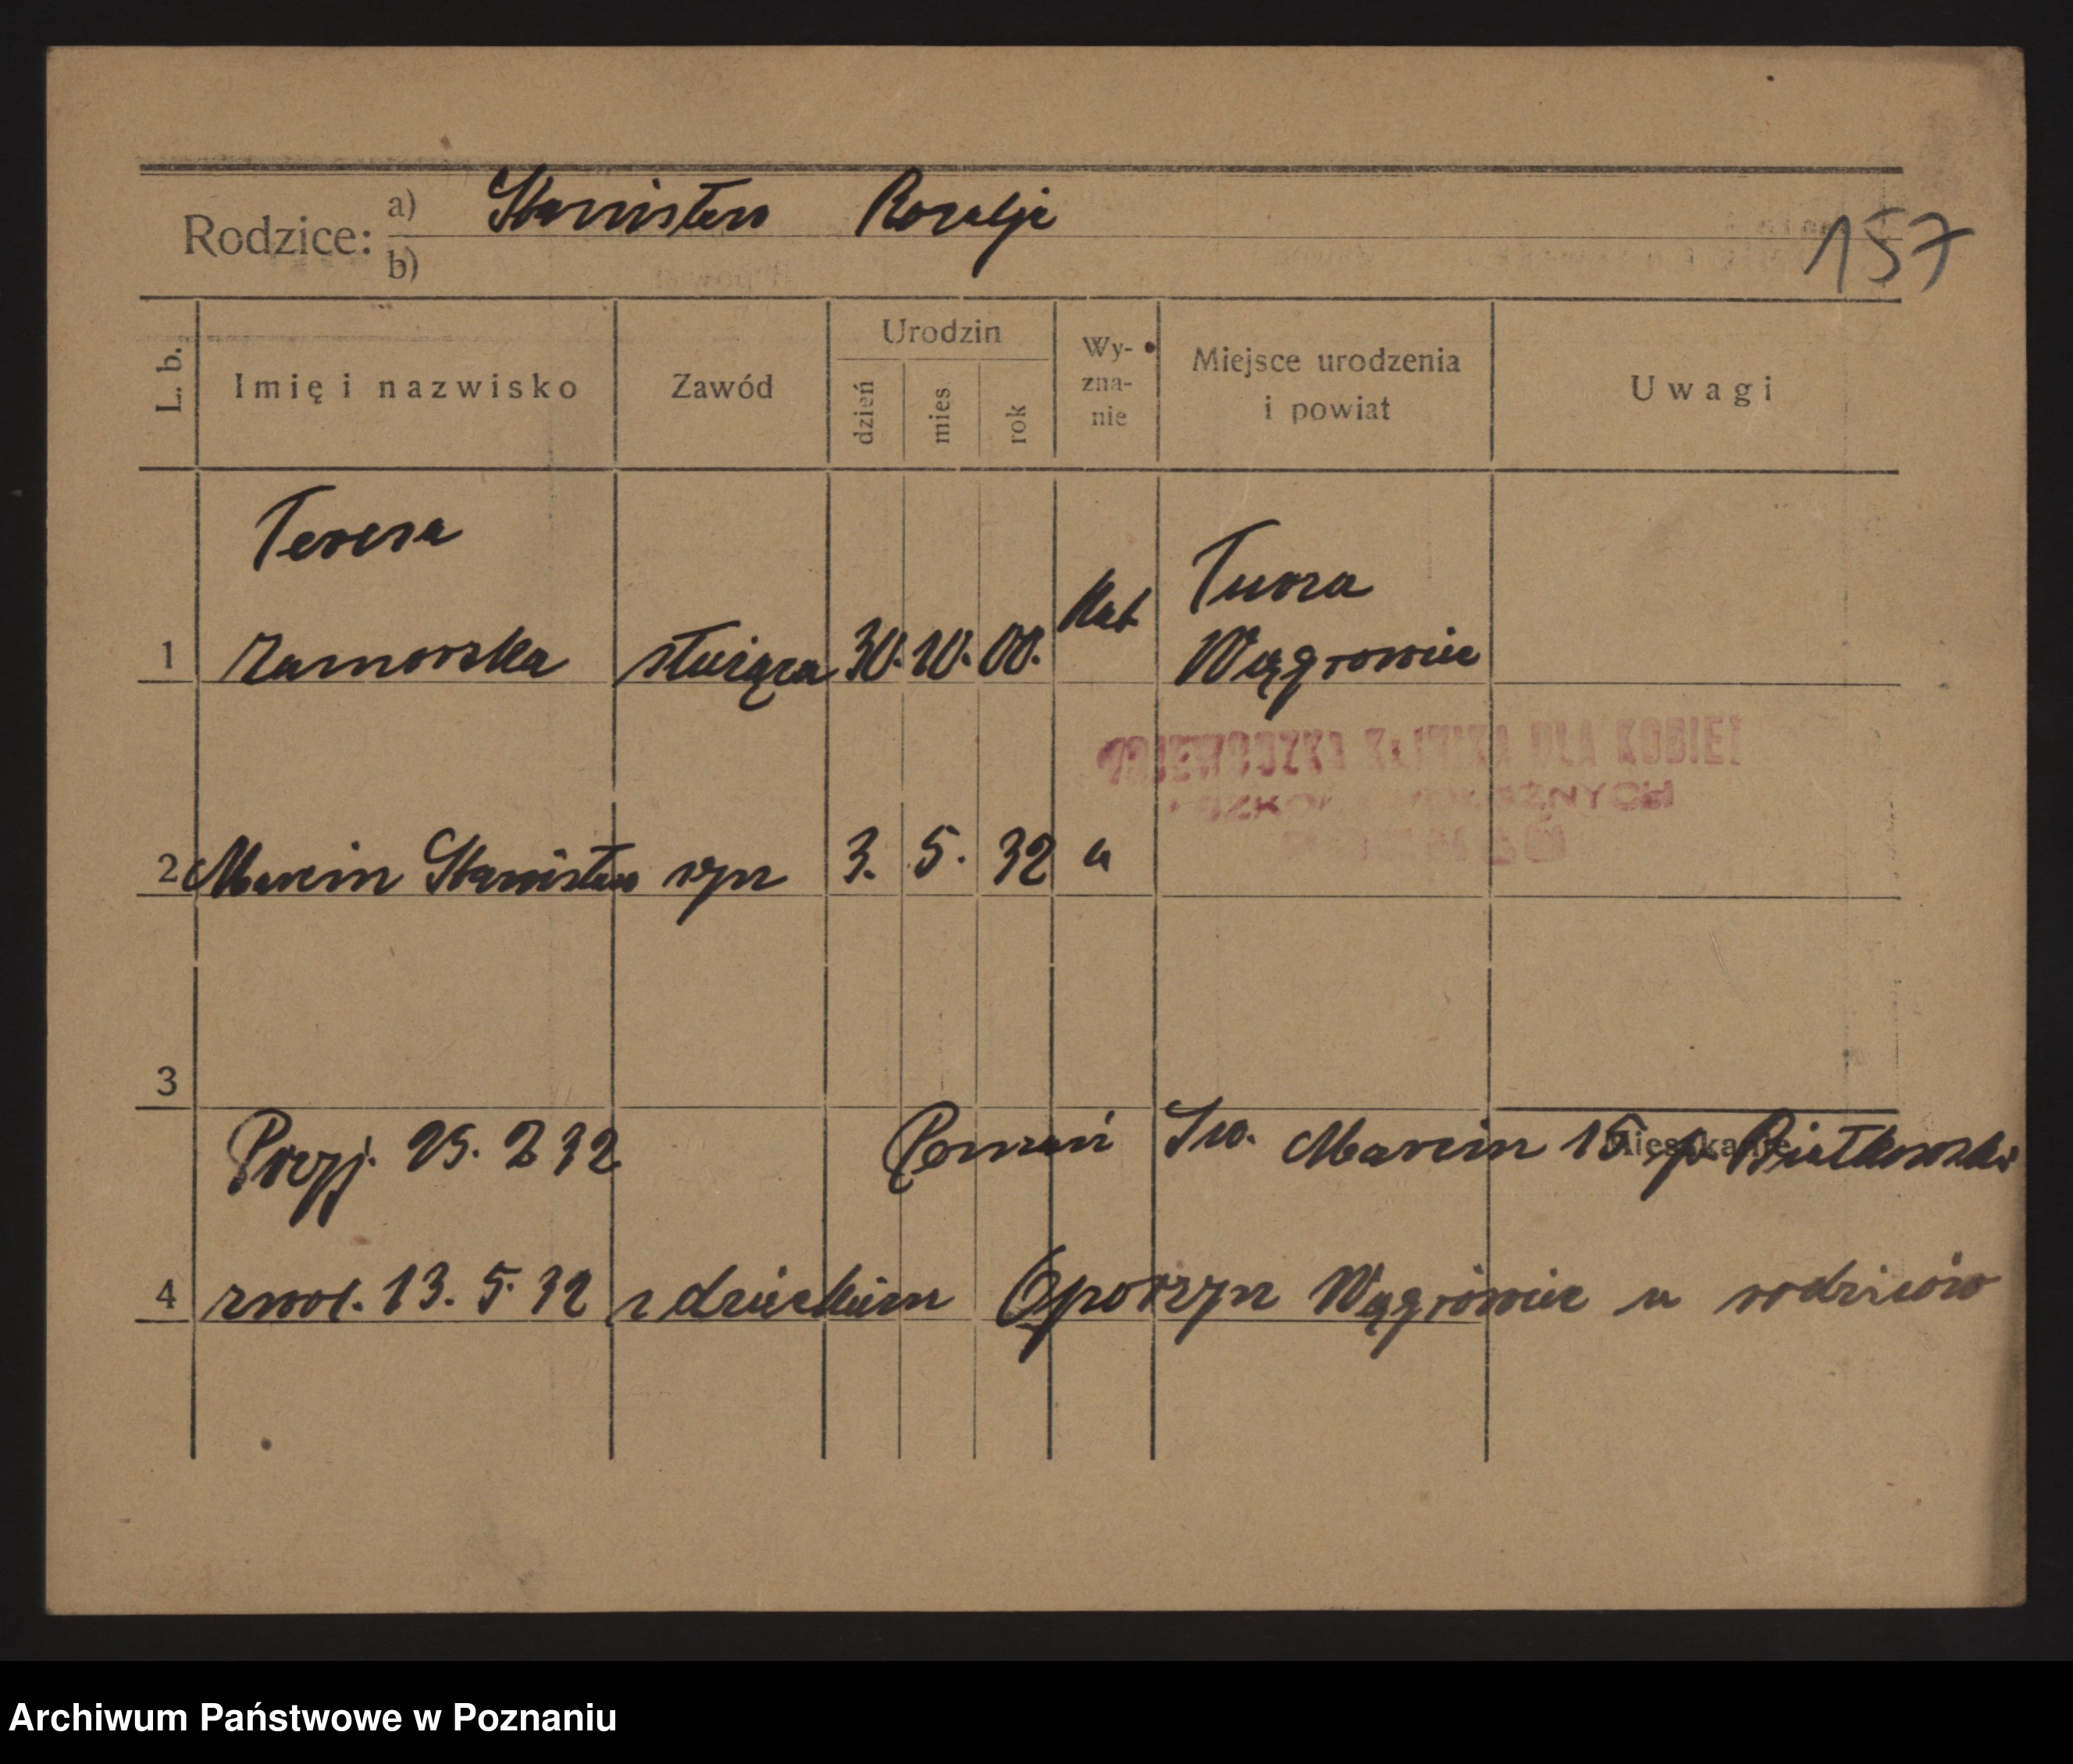 Rodzice: a) Stanisław Rozalja
b)
157
L. b. Imię i nazwisko Zawód Urodzin dzień mies rok Wy-zna-nie Miejsce urodzenia i powiat Uwagi
Teresa Turza
1 Zamorska służąca 30. 10. 00. Kat Wągrowiec
WOJEWÓDZKA KLINIKA DLA KOBIET
2 Marcin Stanisław syn 3. 5. 32 "
3
Mieszkanie
Przyj. 25. 2 32 Poznań Św. Marcin 15 p. Białkowski
4 zwol. 13. 5. 32 z dzieckiem Oporzyn Wągrówiec u rodziców
Archiwum Państwowe w Poznaniu